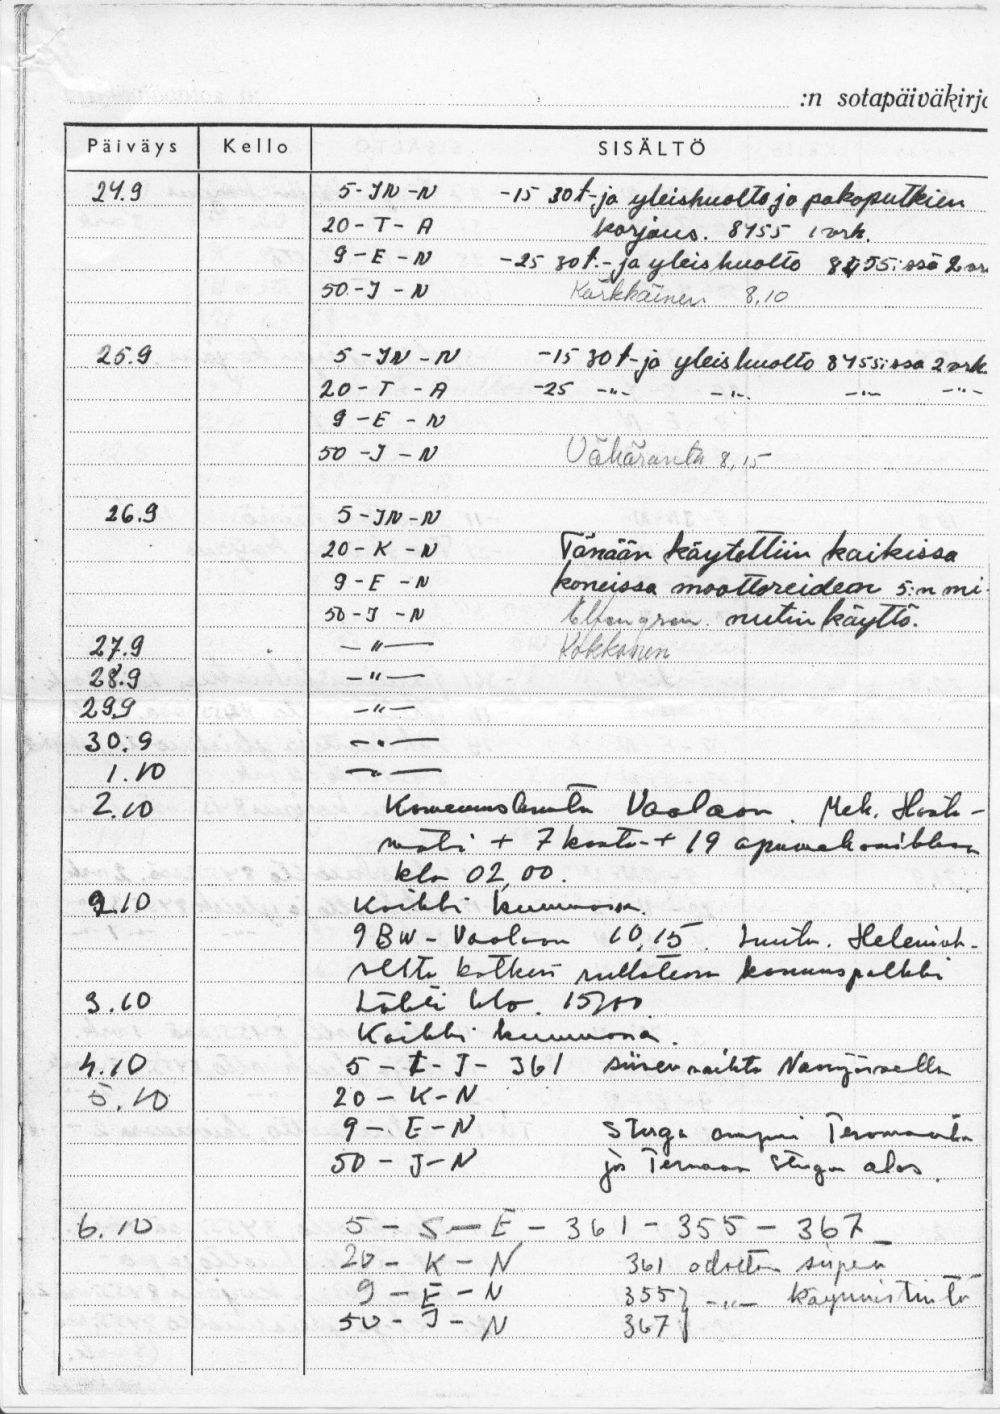 :n sotapäiväkirja
Päiväys Kello SISÄLTÖ
24.9 5-JN-N -15 30 t-ja yleishuolto ja pakoputkien
20-T-A korjaus. 8455 1 vrk.
9-E-N -25 30 t.-ja yleishuolto 8455:ssä 2 vr
50-J-N Kärkkäinen 8,10
25.9 5-JN-N -15 30 t-ja yleishuolto 8455:ssä 2 vrk
20-T-A -25 -"- -"- -"- -"-
9-E-N
50-J-N Vähäranta 8,15
26.9 5-JN-N
20-K-N Tänään käytettiin kaikissa
9-E-N koneissa moottoreiden 5:n mi-
50-J-N nutin käyttö.
27.9 -"- Kokkonen
28.9 -"-
29.9 -"-
30.9 -"-
1.10 -"-
2.10 Vaalaan. Mek.
+ 7 + 19
klo 02,00.
2.10 Kaikki kunnossa.
9 BW- Vaalaan 10,15.
katkesi
3.10 Lähti klo. 15,00.
Kaikki kunnossa.
4.10 5-T-J-361 siivenvaihto
5.10 20-K-N
9-E-N Stuga
50-J-N Stuga alas.
6.10 5-S-E-361-355-367
20-K-N 361 odottaa siipeä
9-E-N 355} -"- käynnistintä
50-J-N 367}